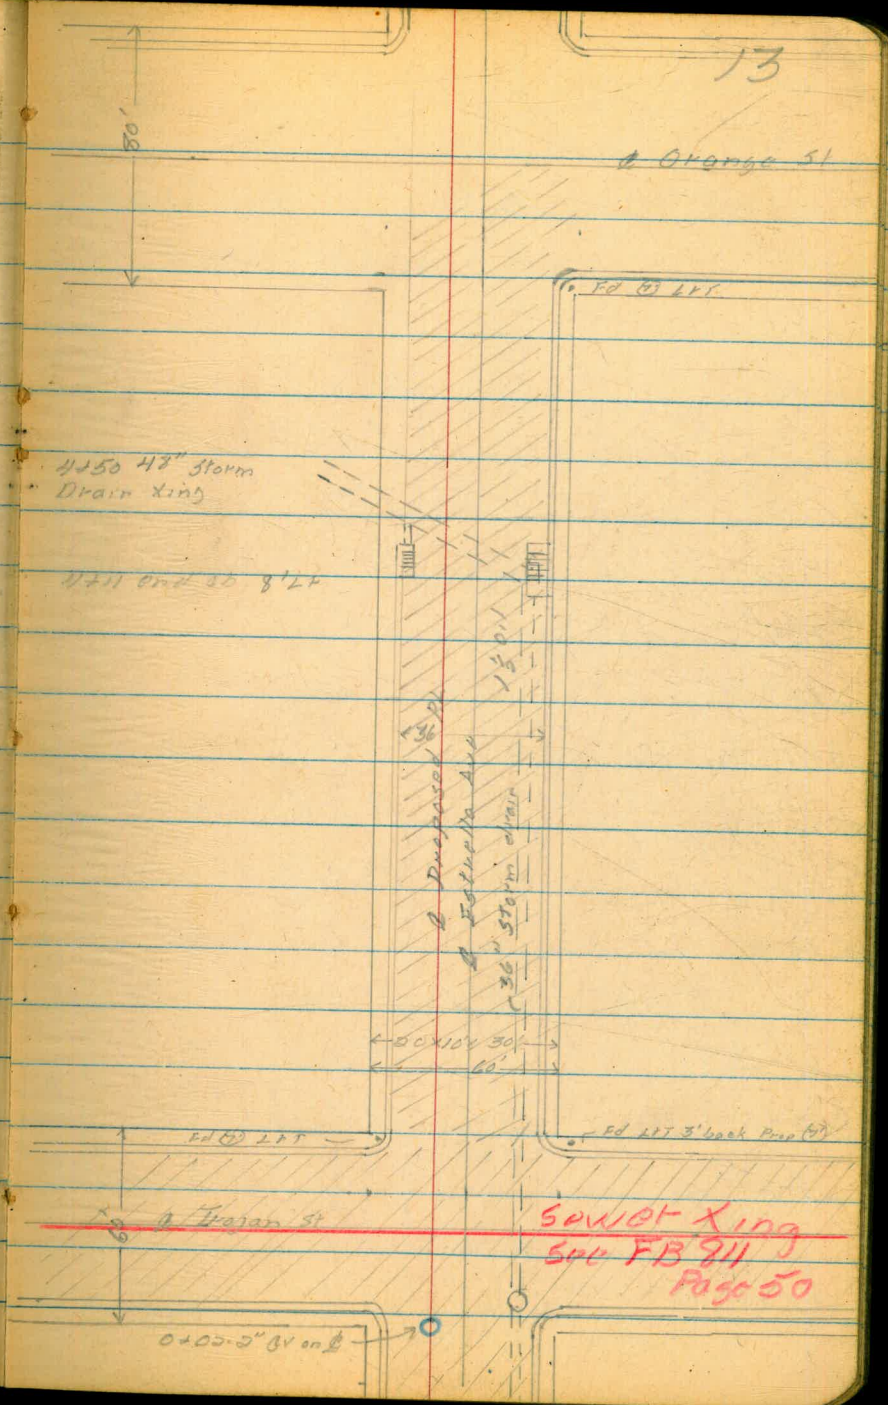 13
80'
℄ Orange St
Fd L&T
4+50 48" Storm
Drain Xing
4+11 end ob 8' Lt
1½ Oil
36
℄ Proposed PL
℄ Estrella Ave
36" Storm drain
30'
60'
Fd L&T
Fd L&T 3' back Prop
℄ Trojan St
60
Sewer Xing
See FB 811
Page 50
0+02 - 2" GV on ℄